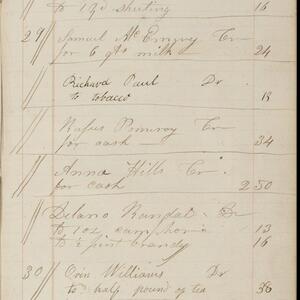 to 1 yd sheeting 16
29 Samuel McEnvoy Cr
for 6 qts milk 24
Richard Paul Dr
to tobacco 18
Rufus Pomeroy Cr
for cash — 34
Anna Hills Cr
for cash 2 50
Delano Randal - Dr
to 1 oz camphor 13
to ½ pint brandy 16
30 Orin Williams Dr
to half pound of tea 38